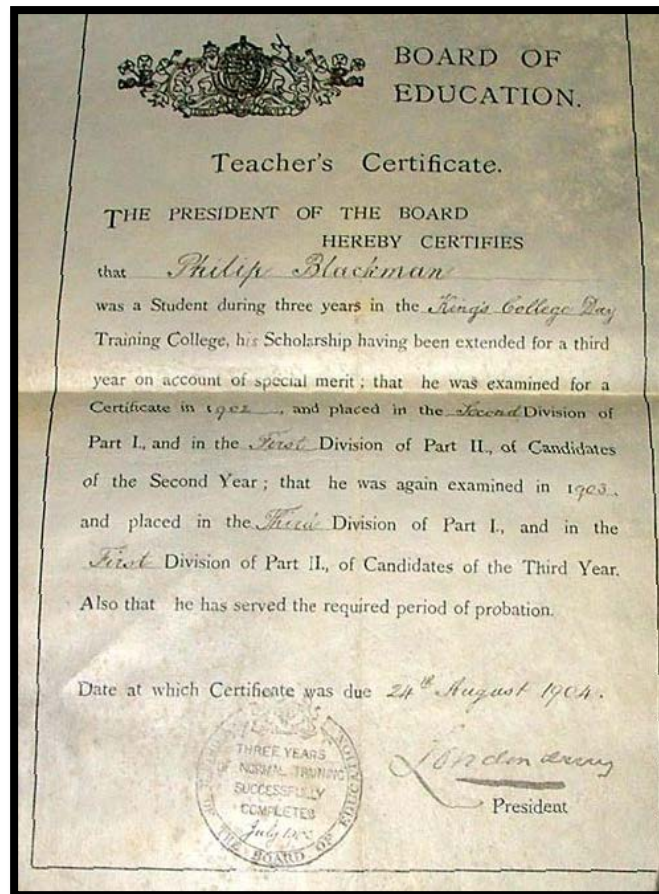 BOARD OF
EDUCATION.
Teacher's Certificate.
THE PRESIDENT OF THE BOARD
HEREBY CERTIFIES
that Philip Blackman
was a Student during three years in the King's College Day
Training College, his Scholarship having been extended for a third
year on account of special merit; that he was examined for a
Certificate in 1902, and placed in the Second Division of
Part I., and in the First Division of Part II., of Candidates
of the Second Year; that he was again examined in 1903,
and placed in the Third Division of Part I., and in the
First Division of Part II., of Candidates of the Third Year.
Also that he has served the required period of probation.
Date at which Certificate was due 24th August 1904.
THREE YEARS
OF NORMAL TRAINING
SUCCESSFULLY
COMPLETED
July
OF THE BOARD OF EDUCATION
Londonderry
President